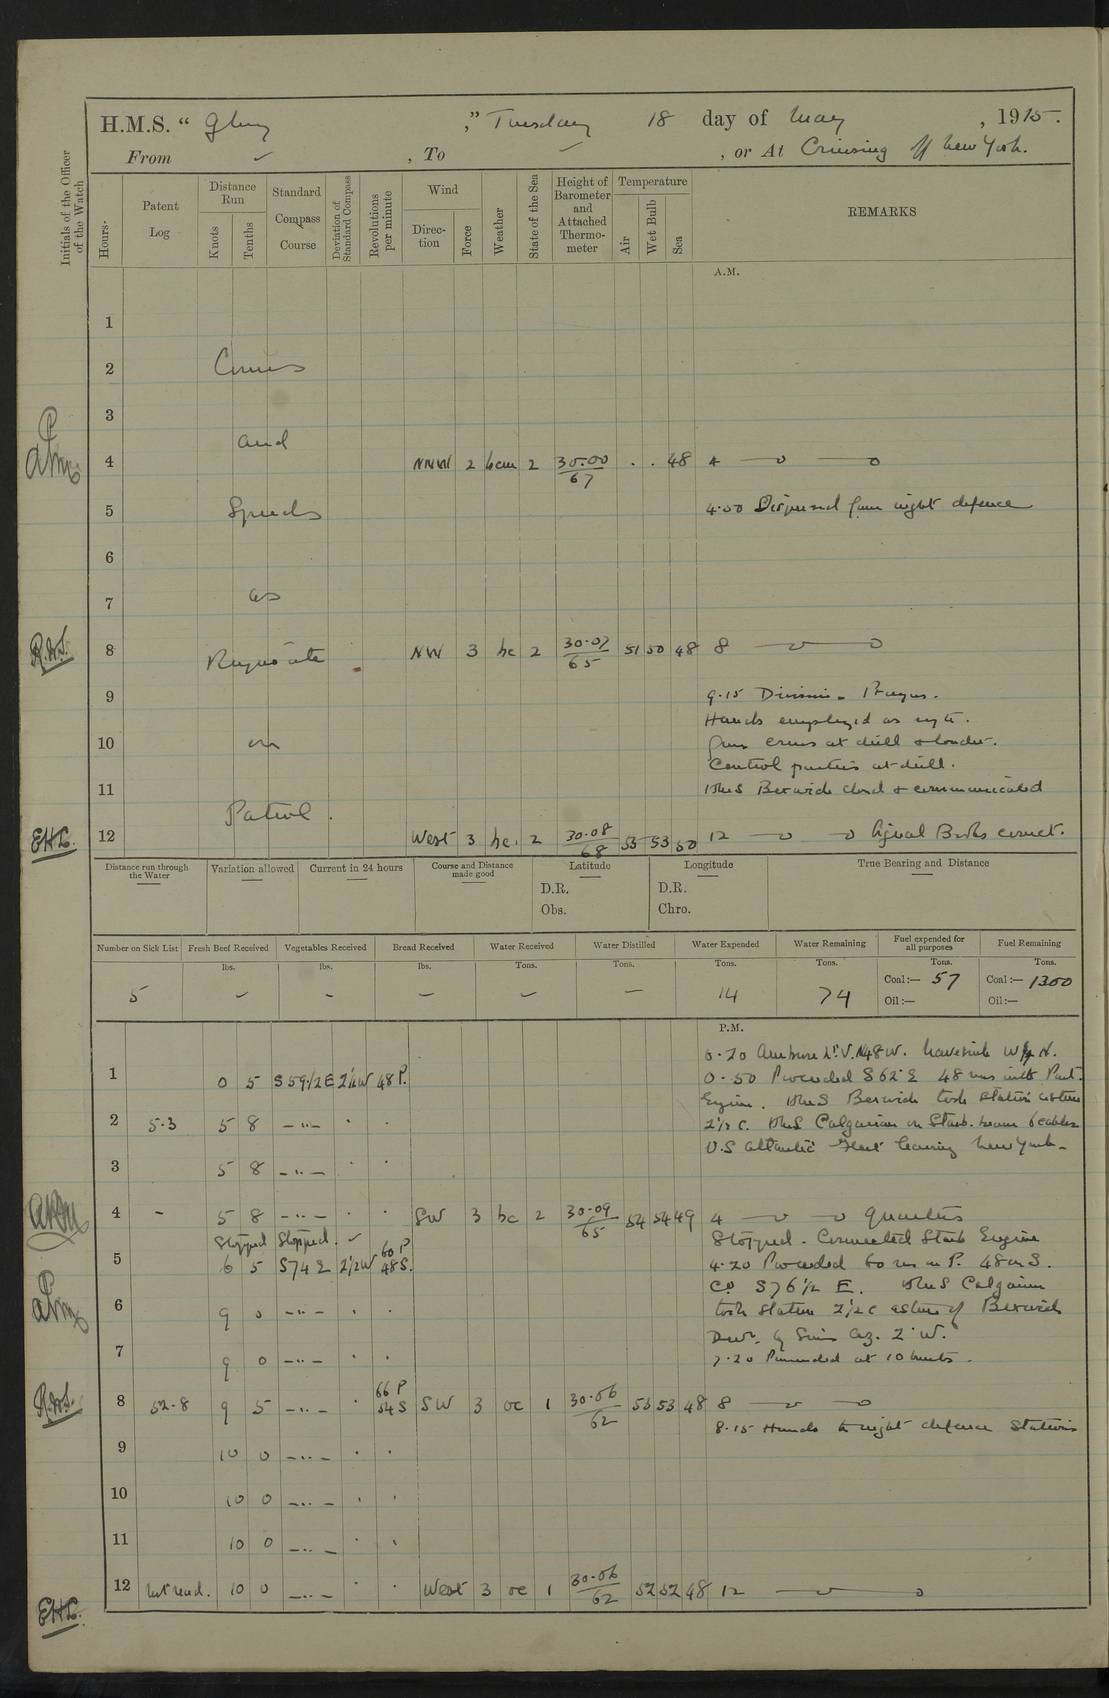 H.M.S. “ Glory ,” Tuesday 18 day of May , 1915.
From ✓ , To – , or At Cruising off New York.
Initials of the Officer of the Watch
Hours.
Patent Log
Distance Run
Knots
Tenths
Standard Compass Course
Deviation of Standard Compass
Revolutions per minute
Wind
Direction
Force
Weather
State of the Sea
Height of Barometer and Attached Thermometer
Temperature
Air
Wet Bulb
Sea
REMARKS
A.M.
1
2 Courses
3
and
4 NNW 2 bcm 2 30.00 67 . . 48 4
5 Speeds 4.00 Dispersed from night defence
6
7 as
8 Requisite NW 3 bc 2 30.07 65 51 50 48 8
R.W.S.
9 9.15 Divisions. Prayers.
Hands employed as reqte.
10 on Guns crews at drill & loader.
Control parties at drill.
11 HMS Berwick closed & communicated
Patrol.
12 West 3 bc. 2 30.08 68 53 53 50 12 Signal Books correct.
EHL.
Distance run through the Water
Variation allowed
Current in 24 hours
Course and Distance made good
Latitude
D.R.
Obs.
Longitude
D.R.
Chro.
True Bearing and Distance
Number on Sick List
Fresh Beef Received
Vegetables Received
Bread Received
Water Received
Water Distilled
Water Expended
Water Remaining
Fuel expended for all purposes
Fuel Remaining
lbs. lbs. lbs. Tons. Tons. Tons. Tons. Tons. Tons.
5 – – – – – 14 74 Coal:— 57 Coal:— 1300
Oil:— Oil:—
P.M.
0.20 Ambrose Lt. V. N48W.
1 0 5 S59½E 2½W 48 P. 0.50 Proceeded S62E 48 revs with Port.
Engine. HMS Berwick took station astern
2 5.3 5 8 – ·· – 2½ c. HMS Calgarian on Starb. beam 6 cables
U.S Atlantic Fleet leaving New York.
3 5 8 – ·· –
4 – 5 8 – ·· – SW 3 bc 2 30.09 65 54 54 49 4 Quarters
Stopped Stopped. ✓ Stopped. Connected Starb Engine
5 6 5 S74E 2½W 60 P 48 S. 4.20 Proceeded 60 revs on P. 48 on S.
Co S76½ E. HMS Calgarian
6 9 0 – ·· – took station 2½ c astern of Berwick
Devn. by Sun's Az. 2° W.
7 9 0 – ·· – 7.20 Proceeded at 10 knots.
8 52.8 9 5 – ·· – 66 P 54 S SW 3 oc 1 30.06 62 53 53 48 8
R.W.S.
8.15 Hands to night defence Stations
9 10 0 – ·· –
10 10 0 – ·· –
11 10 0 – ·· –
12 not read. 10 0 – ·· – West 3 oc 1 30.06 62 52 52 48 12
EHL.